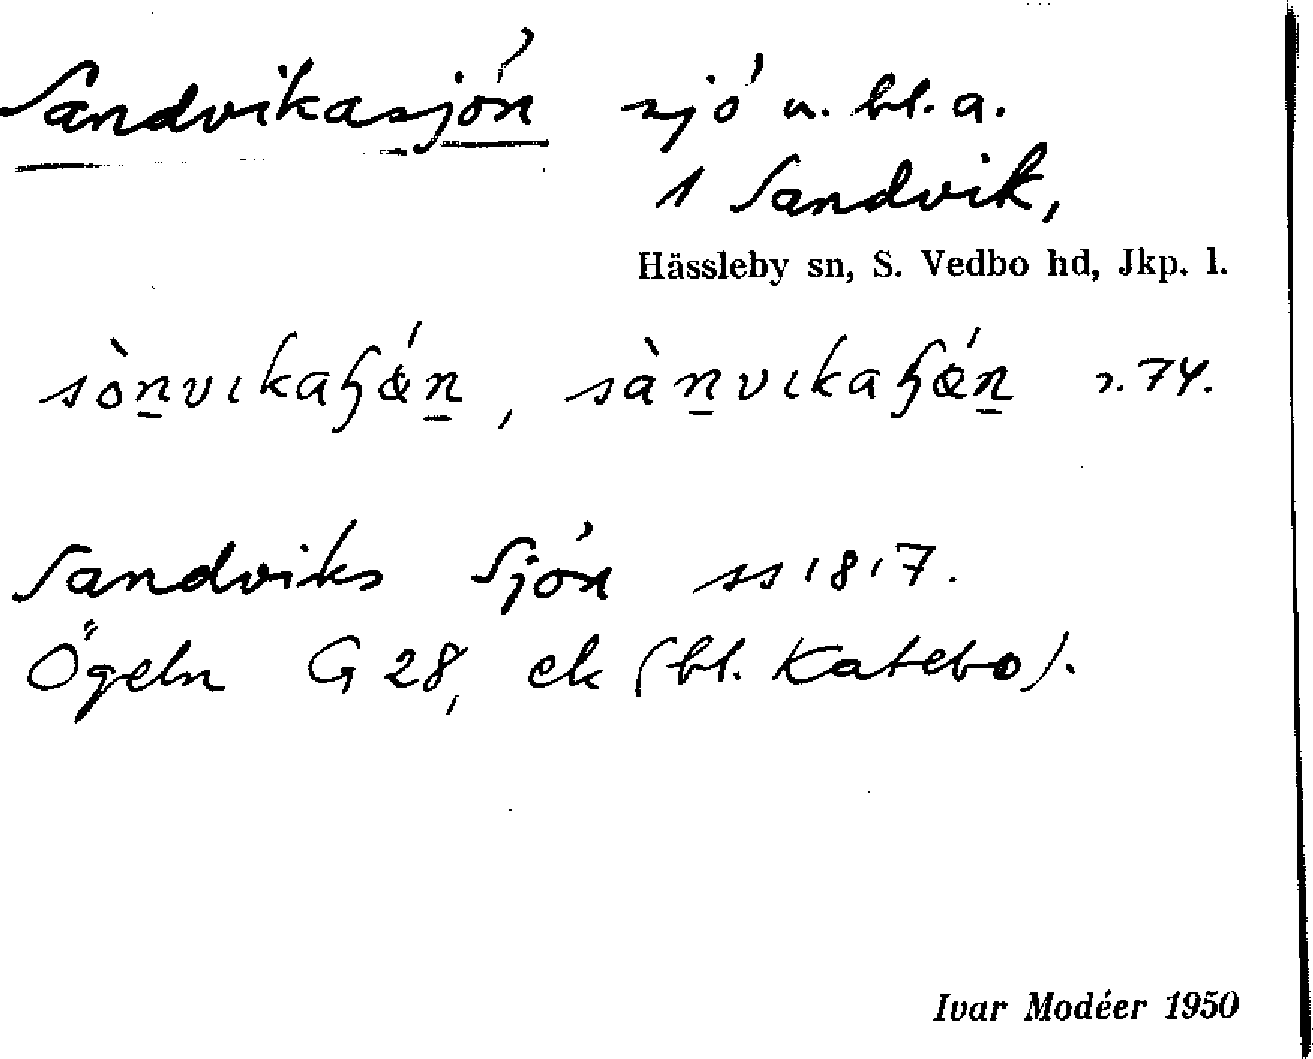 Sandvikasjön sjö u. bl. a.
1 Sandvik,
Hässleby sn, S. Vedbo hd, Jkp. l.
s. 74.
Sandviks Sjön ss 1817.
Ögeln G 28, ek (bl. Katebo).
Ivar Modéer 1950